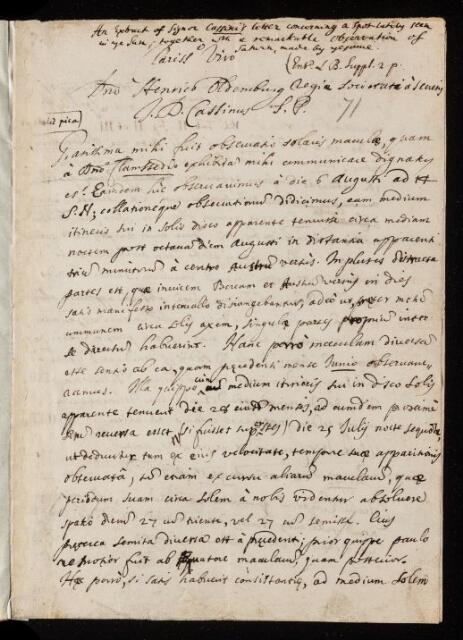 An Extract of Signor Cassini's letter concerning a Spot lately seen
in ye Sun; together with a remarkable observation of
Saturn, made by ye same.
Cariss. Viro
Ent. L. B. Suppl. 2 p.
Dno Henrico Oldenburg Regiæ Societatis à Secretis
J. D. Cassinus S. P.
71
Gratissima mihi fuit observatio solaris maculæ, quam
à Dno Flamstedio exhibitam mihi communicare dignatus
es. Eamdem hic observavimus à die 6 Augusti ad 14
S. N; collationeque observationum didicimus, eam medium
itineris sui in Solis disco apparente tenuisse circa mediam
noctem post octavum diem Augusti in distantia apparenti
trium minutorum à centro Austrum versus. In plures distracta
partes est, quæ invicem Boream et Austrum versus in dies
satis manifesto intervallo disiungebantur, adeo ut, præter motum
communem circa solis axem, singulæ partes proprium inter
se directum habuerint. Hanc porro maculam diversam
esse sentio ab ea, quam præcedenti mense Junio observave-
ramus. Illa quippe cum medium itineris sui in disco Solis
apparente tenuerit die 28 eius mensis, ad eundem proxime
situm reversa esset (si fuisset superstes) die 25 Julij nocte sequente,
ut deducitur tum ex eius velocitate, tempore suæ apparitionis
observata, tum etiam ex cursu aliarum macularum, quæ
periodum suam circa Solem à nobis videntur absolvere
spatio dierum 27 cum triente, vel 27 cum semisse. Eius
præterea semita diversa est à præcedenti; prior quippe paulo
remotior fuit ab Æquatore macularum, quam posterior.
Hæc porro, si satis habuerit consistentiæ, ad medium Solem